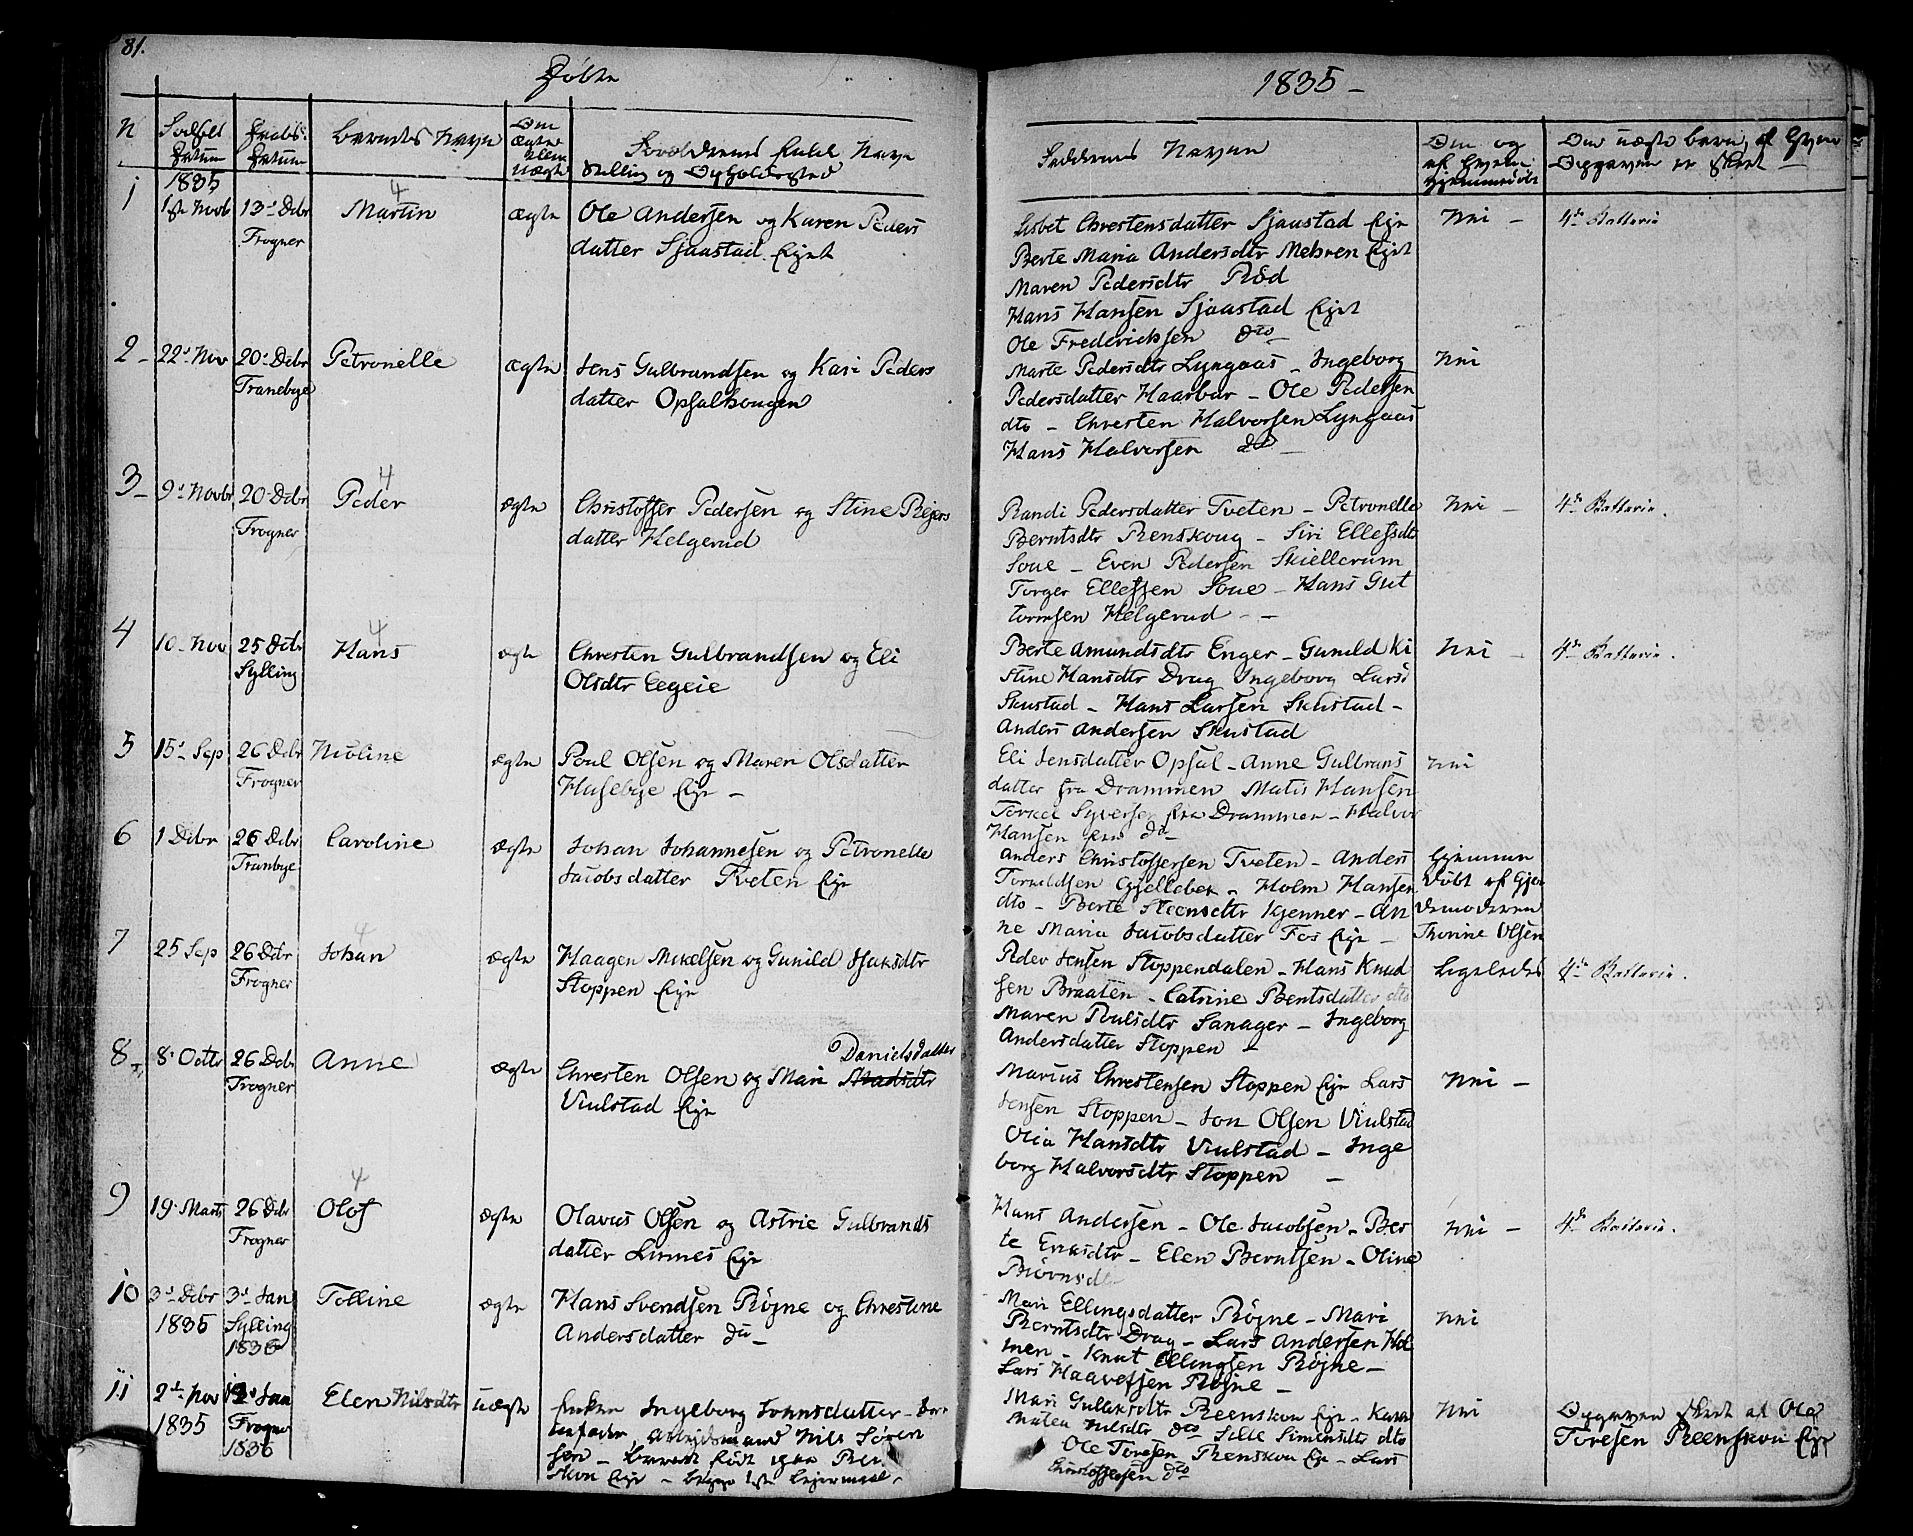 81.
Døbte
1835 –
N
Fødsels Datum
Daabs Datum
Barnets Navn
Om ægte eller uægte
Forældrenes fulde Navn Stilling og Opholdssted
Faddernes Navne
Om og af hvem hjemmedøbt
Om uægte barn, af hvem Opgaven er skeet
1
1835
1ste Novb
13d Debr
Frogner
4
Martin
ægte
Ole Andersen og Karen Peders
datter Sjaastad Ejet
Lisbet Chrestensdatter Sjaastad Eje
Berte Maria Andersdtr Mehren Ejet
Maren Pedersdtr Röd
Hans Hansen Sjaastad Ejet
Ole Frederichsen dto
Nei –
4de Batterie
2 –
22d Nov
20d Debr
Tranebye
Petronelle
ægte
Jens Gulbrandsen og Kari Peders
datter Opsalhougen
Marte Pedersdtr Lyngaas – Ingeborg
Pedersdatter Haarbar – Ole Pedersen
dto – Chresten Halvorsen Lyngaas
Hans Halvorsen do –
Nei
3 –
9d Novbr
20 Debr
Frogner
4
Peder
ægte
Christoffer Pedersen og Stine Rejers
datter Helgerud
Randi Pedersdatter Tveten – Petronelle
Berntsdtr Renskoug – Siri Ellefsdtr
Soue – Even Pedersen Skiellerum
Torger Ellefsen Soue – Hans Gut
tormsen Helgerud – –
Nei –
4de Batterie.
4
10 Nov
25 Debr
Sylling
4
Hans
ægte
Chresten Gulbrandsen og Eli
Olsdtr Eegeie
Berte Amundsdtr Enger – Gunild Ki
stine Hansdtr Drag Ingeborg Larsd
Skustad – Hans Larsen Skustad –
Anders Andersen Skustad
Nei –
4de Batterie.
5
15d Sep
26 Debr
Frogner
Nicoline
ægte
Poul Olsen og Maren Olsdatter
Husebye Eje –
Eli Jensdatter Opsal – Anne Gulbrans
datter fra Drammen Matis Hansen
Torkel Syversen fra Drammen – Halvor
Hansen fra do –
Nei
6
1 Debr
26 Debr
Tranbye
Caroline
ægte
Johan Johannesen og Petronelle
Jacobsdatter Tveten Eje
Anders Christoffersen Tveten – Anders
Torkeldsen Gjellebek – Holm Hansen
dto – Berte Steensdtr Kjenner – An
ne Maria Jacobsdatter Fos Eje –
Hjemme
døbt af Gjor
demoderen
Thorine Olsen
7
25 Sep
26 Debr
Frogner
4
Johan
ægte
Haagen Mikelsen og Gunild Isaksdtr
Stoppen Eje
Peder Jensen Stoppendalen – Hans Knud
sen Braaten – Catrine Bentsdatter dto
Maren Pulsdtr Sanager – Ingeborg
Andersdatter Stoppen –
Ligeledes
4de Batterie.
8
8 Octbr
26 Debr
Frogner
Anne
ægte
Danielsdatter
Chresten Olsen og Mari Madsdtr
Viulstad Eje
Marius Chrestensen Stoppen Eje Lars
Jensen Stoppen – Jon Olsen Viulstad
Olia Hansdtr Viulstad – Inge
borg Halvorsdtr Stoppen –
Nei –
9
19 Marts
26 Debr
Frogner
4
Olof
ægte
Olavus Olsen og Astrie Gulbrands
datter Linnes Eje
Hans Andersen – Ole Jacobsen – Ber
te Eriksdtr – Elen Berntsen – Oline
Biörnsdtr
Nei –
4de Batterie.
10
3d Debr
1835
3d Jan
Sylling
1836
Telline
ægte
Hans Svendsen Röjne og Chrestine
Andersdatter do –
Mari Ellingsdatter Röjne – Mari
Berntsdtr Drag – Lars Andersen Hol
men – Knut Ellingsen Röjne –
Lars Haavelsen Röjne –
Nei
11
2d Nov
1835
Jan
Frogner
1836
Elen Nilsdtr
uægte
Enken Ingeborg Johnsdatter – Bar
nefader, Arbejdsmand Nils Sören
sen – Barnet födt paa Ren
skou Eje – begge 1ste Lejermaal.
Mari Gulaksdtr Reenskou Eje – Karen
Matea Nilsdtr dto Sille Simensdtr dto
Ole Toresen Renskou Eje – Lars
Christoffersen dto
Nei
Opgaven skeet af Ole
Toresen Reenskou Eje